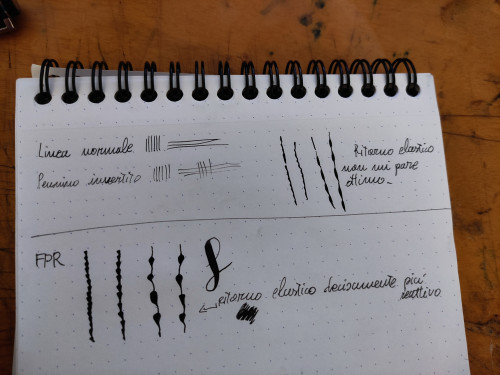 Linea normale
Pennino invertito
Ritorno elastico
non mi pare
ottimo.
FPR
ritorno elastico decisamente più
reattivo